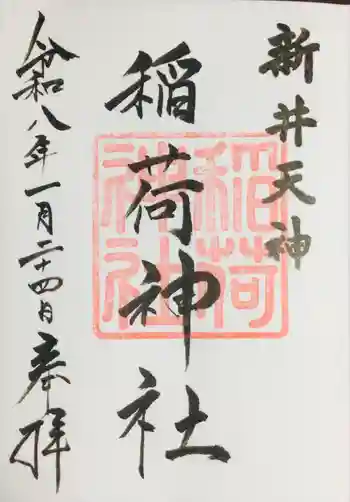 新井天神
稲荷神社
稲荷
神社
令和八年一月二十四日奉拝